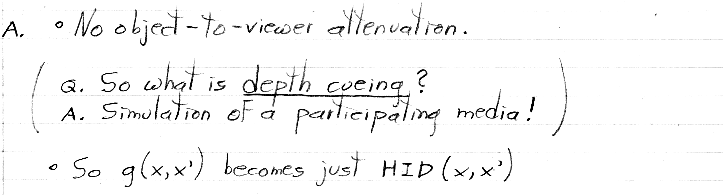 A. • No object-to-viewer attenuation.
( Q. So what is depth cueing?
A. Simulation of a participating media! )
• So g(x,x') becomes just HID(x,x')